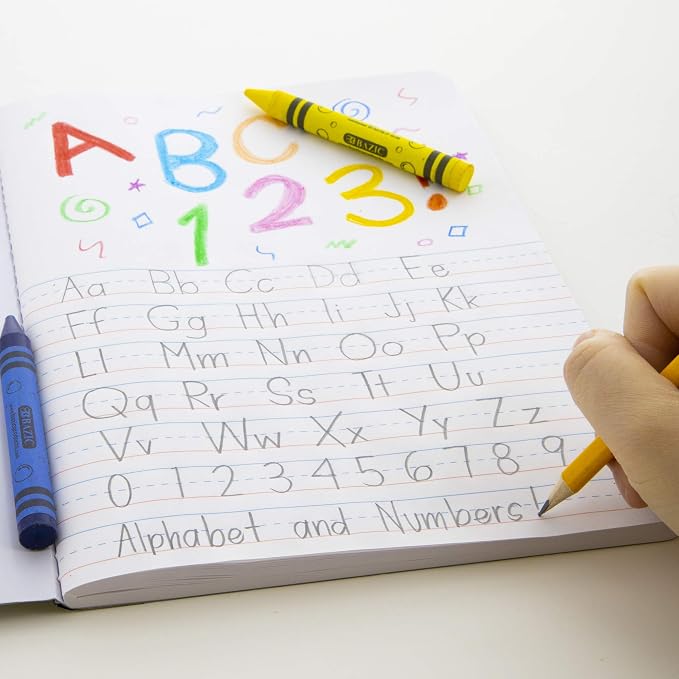 ABC
123
BAZIC
Aa Bb Cc Dd Ee
Ff Gg Hh Ii Jj Kk
Ll Mm Nn Oo Pp
Qq Rr Ss Tt Uu
Vv Ww Xx Yy Zz
0 1 2 3 4 5 6 7 8 9
Alphabet and Numbers!
BAZIC